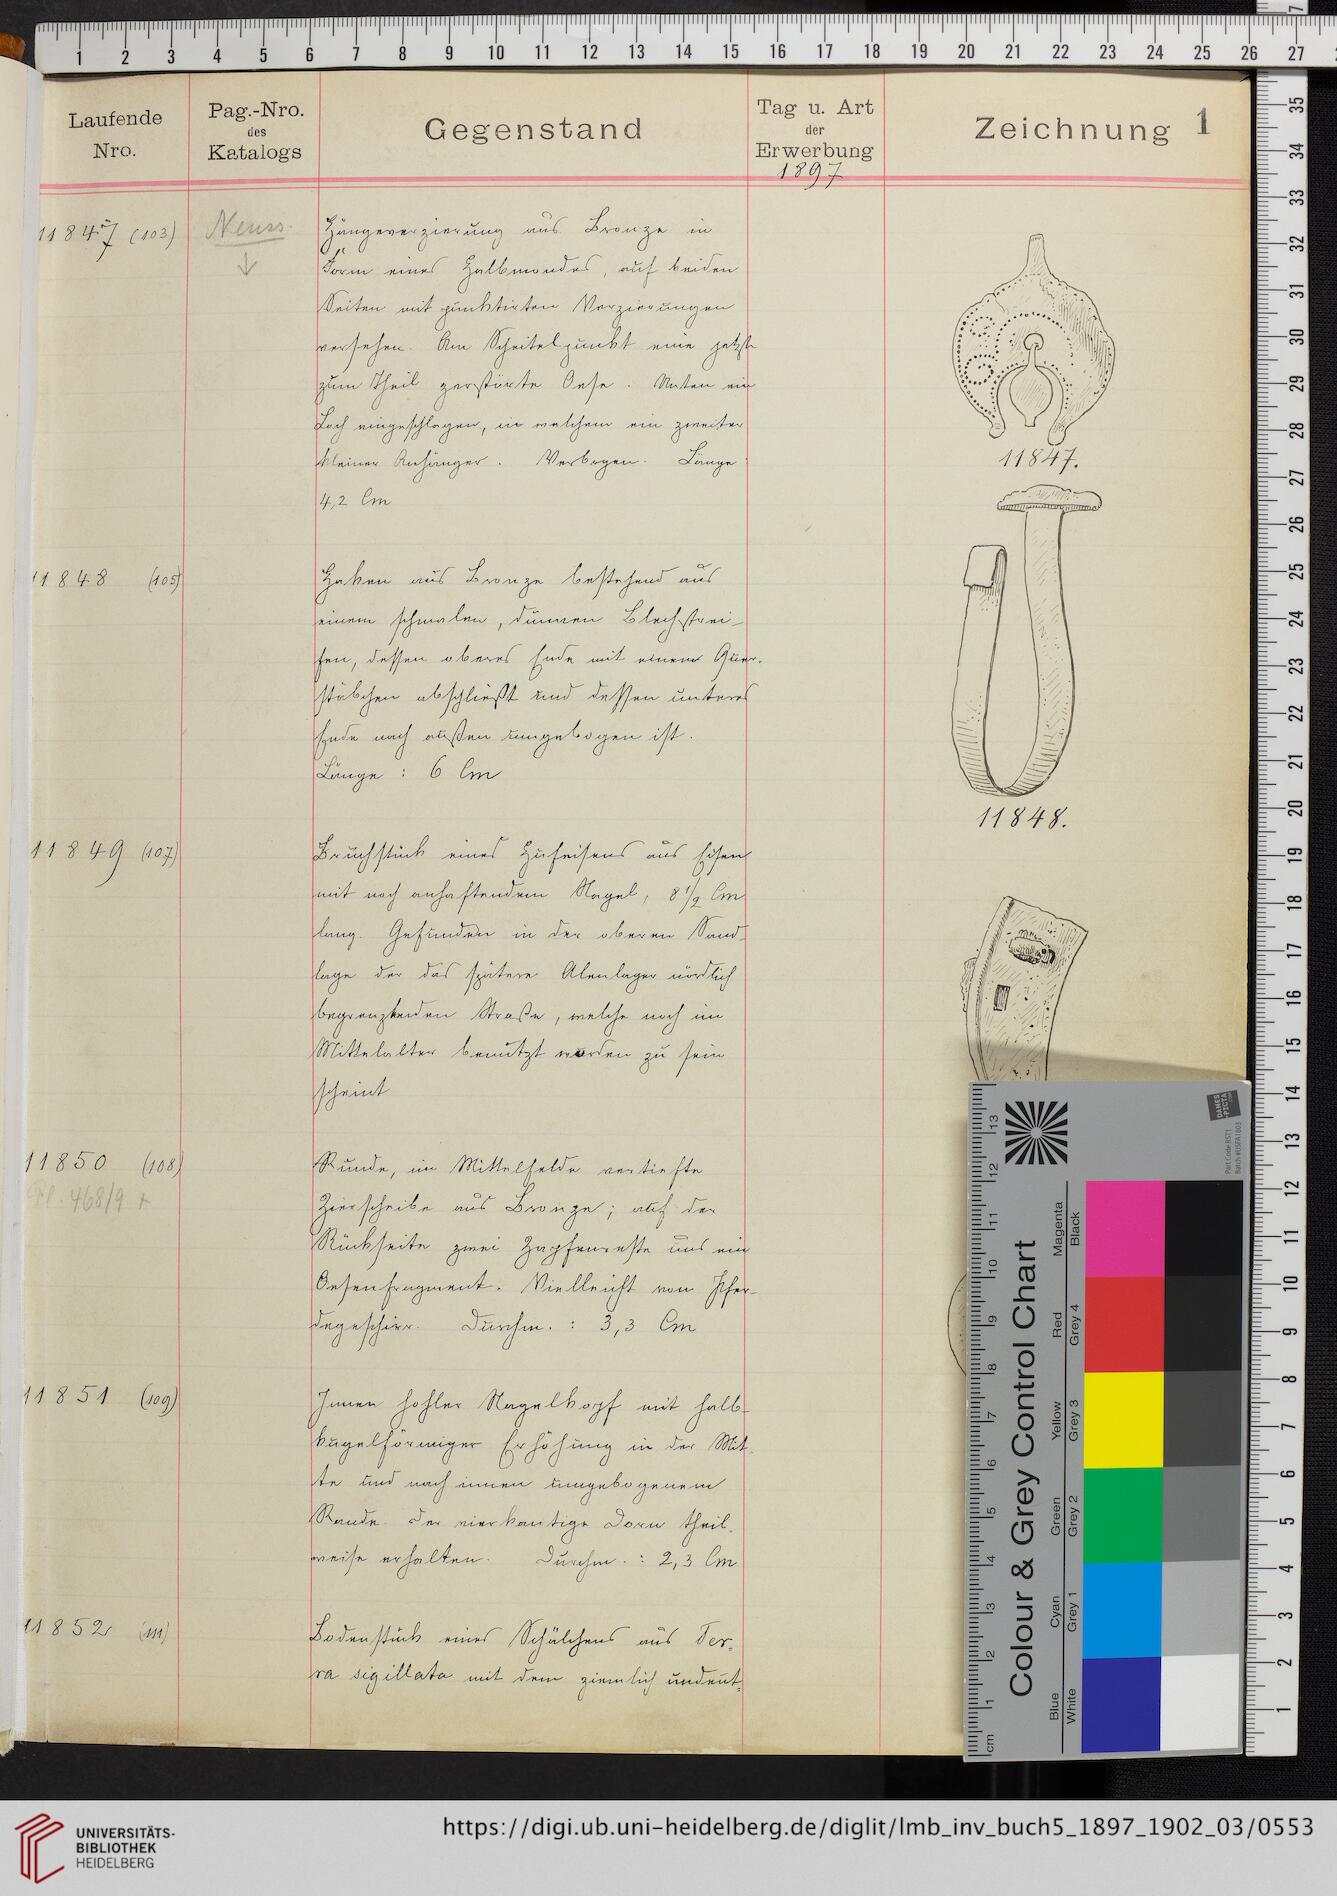 Laufende Nro.
Pag.-Nro. des Katalogs
Gegenstand
Tag u. Art der Erwerbung
1897
Zeichnung 1
11847 (103)
Neuss.
Hängeverzierung aus Bronze in
Form eines Halbmondes, auf beiden
Seiten mit punktirten Verzierungen
versehen. Am Scheitelpunkt eine jetzt
zum Theil zerstörte Oese. Unten ein
Loch eingeschlagen, in welchem ein zweiter
kleiner Anhänger. Verbogen. Länge:
4,2 Cm
11847.
11848 (105)
Haken aus Bronze bestehend aus
einem schmalen, dünnen Blechstrei-
fen, dessen oberes Ende mit einem Quer-
stäbchen abschließt und dessen unteres
Ende nach außen umgebogen ist.
Länge: 6 Cm
11848.
11849 (107)
Bruchstück eines Hufeisens aus Eisen
mit noch anhaftendem Nagel, 8 1/2 Cm
lang. Gefunden in der oberen Sand-
lage der das spätere Alenlager nördlich
begrenzenden Straße, welche noch im
Mittelalter benützt worden zu sein
scheint
11850 (108)
468/9
Runde, im Mittelfelde vertiefte
Zierscheibe aus Bronze; auf der
Rückseite zwei Zapfenreste und ein
Oesenfragment. Vielleicht von Pfer-
degeschirr. Durchm.: 3,3 Cm
11851 (109)
Innen hohler Nagelkopf mit halb-
kugelförmiger Erhöhung in der Mit-
te und nach innen umgebogenem
Rande. Der vierkantige Dorn theil-
weise erhalten. Durchm.: 2,3 Cm
11852 (111)
Bodenstück eines Schälchens aus Ter-
ra sigillata mit dem ziemlich undeut-
Colour & Grey Control Chart
Magenta Black
Red Grey 4
Yellow Grey 3
Green Grey 2
Cyan Grey 1
Blue White
cm 1 2 3 4 5 6 7 8 9 10 11 12 13
1 2 3 4 5 6 7 8 9 10 11 12 13 14 15 16 17 18 19 20 21 22 23 24 25 26 27
35 34 33 32 31 30 29 28 27 26 25 24 23 22 21 20 19 18 17 16 15 14 13 12 11 10 9 8 7 6 5 4 3 2 1
UNIVERSITÄTS-
BIBLIOTHEK
HEIDELBERG
https://digi.ub.uni-heidelberg.de/diglit/lmb_inv_buch5_1897_1902_03/0553